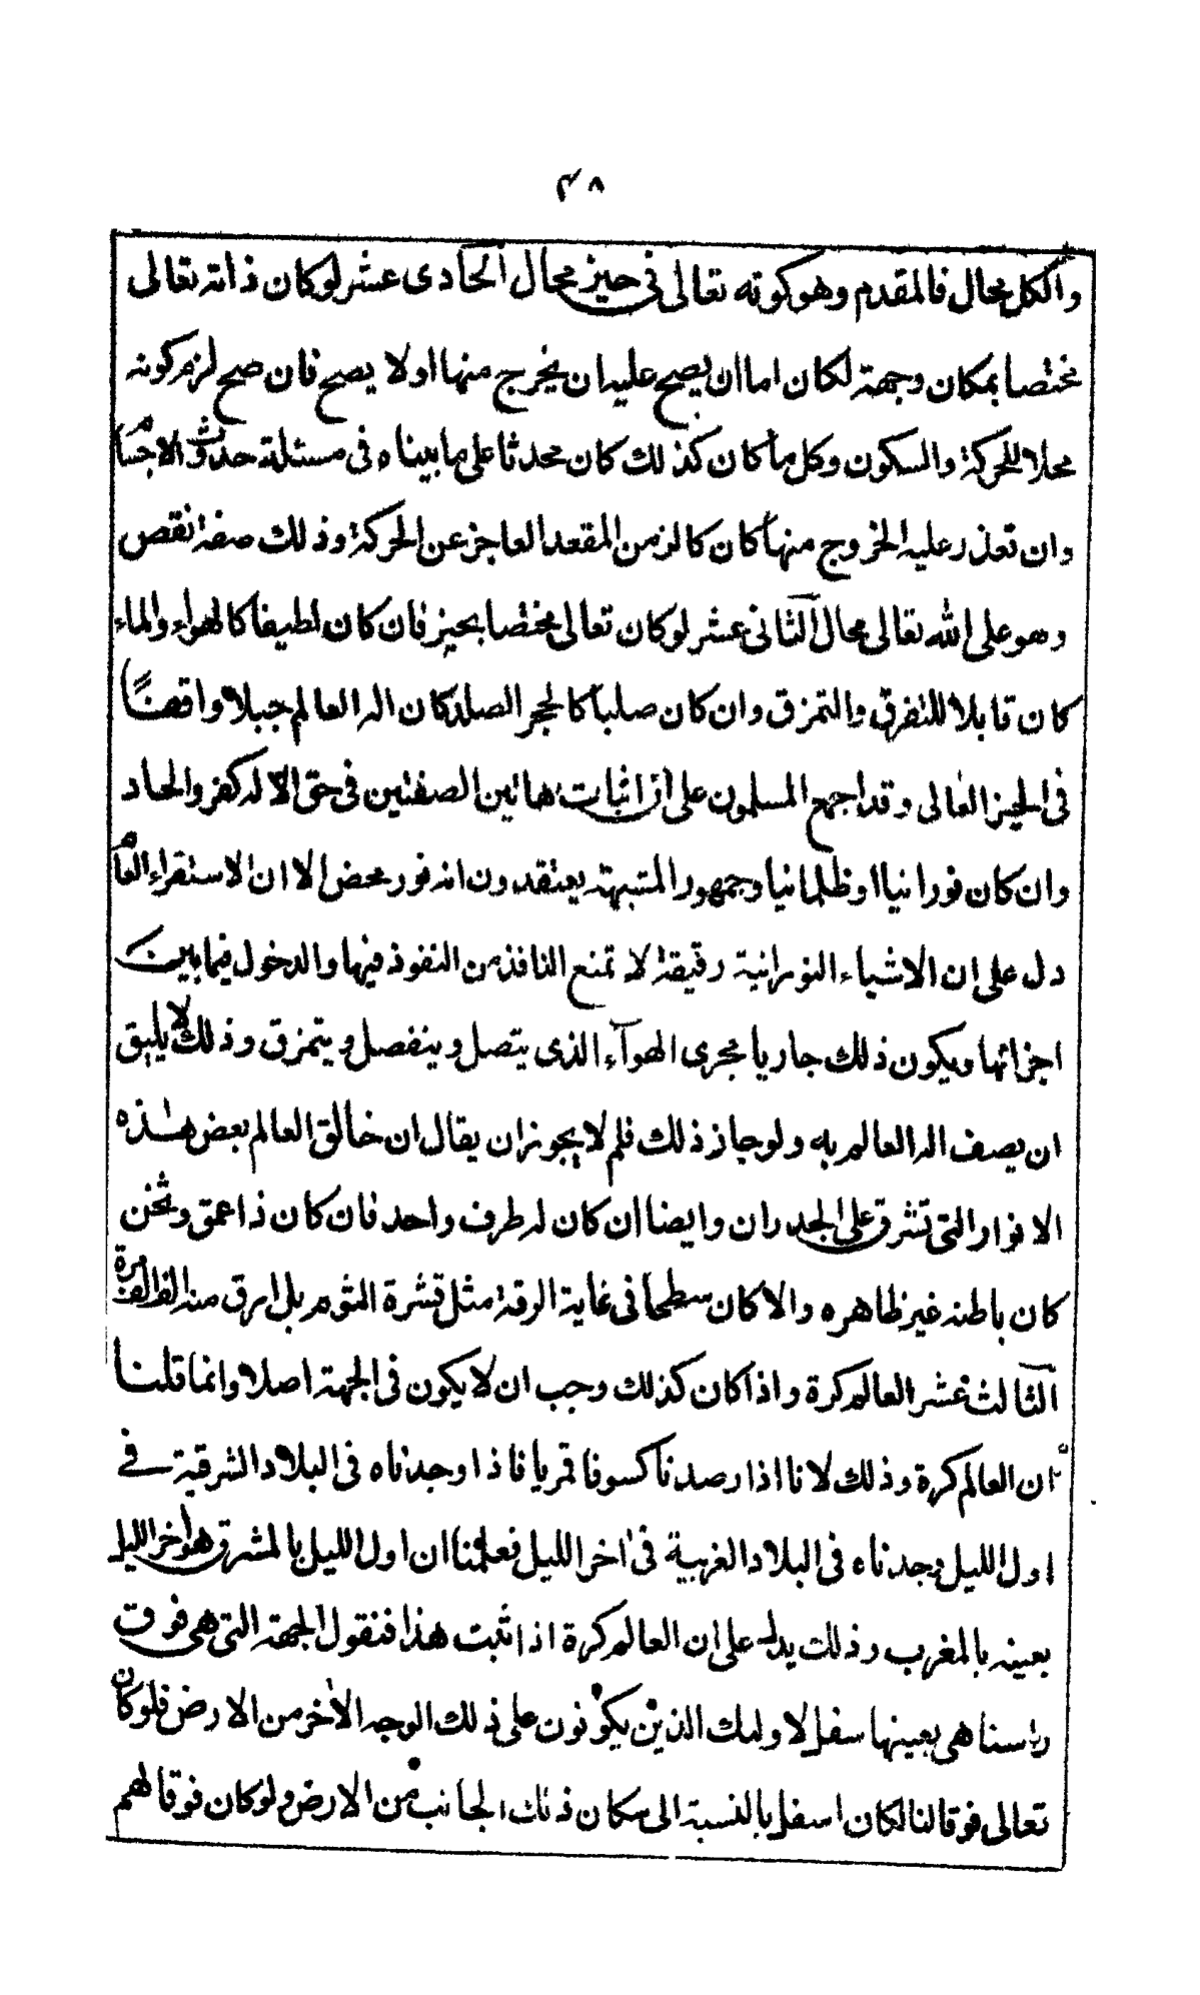 ٤٨
والكل محال فالمقدم وهو كونه تعالى في حيز محال الحادى عشر لو كان ذاته تعالى
مختصا بمكان وجهة لكان اما ان يصح عليه ان يخرج منها او لا يصح فان صح لزم كونه
محلا للحركة والسكون وكل ما كان كذلك كان محدثا على ما بيناه فى مسئلة حدوث الاجسام
وان تعذر عليه الخروج منها كان كالزمن المقعد العاجز عن الحركة وذلك صفة نقص
وهو على الله تعالى محال الثانى عشر لو كان تعالى مختصا بحيز فان كان لطيفا كالهواء والماء
كان قابلا للتفرق والتمزق وان كان صلبا كالحجر الصلد كان اله العالم جبلا واقفًا
فى الحيز العالى وقد اجمع المسلمون على ان اثبات هاتين الصفتين فى حق الاله كفر والحاد
وان كان نورانيا او ظلمانيا وجمهور المشبهة يعتقدون انه نور محض الا ان الاستقراء العام
دل على ان الاشياء النورانية رقيقة لا تمنع النافذ من النفوذ فيها والدخول فيما بين
اجزائها ويكون ذلك جاريا مجرى الهوآء الذى يتصل وينفصل ويتمزق وذلك لا يليق
ان يصف اله العالم به ولو جاز ذلك فلم لا يجوز ان يقال ان خالق العالم بعض هذه
الانوار التى تشرق على الجدران وايضا ان كان له طرف واحد فان كان ذا عمق وثخن
كان باطنه غير ظاهره والا كان سطحا فى غاية الرقة مثل قشرة الثوم بل ارق منه الف الف مرة
الثالث عشر العالم كرة واذا كان كذلك وجب ان لا يكون فى الجهة اصلا وانما قلنا
ان العالم كرة وذلك لانا اذا رصدنا كسوفا قمريا فاذا وجدناه فى البلاد الشرقية فى
اول الليل وجدناه فى البلاد الغربية فى اخر الليل فعلمنا ان اول الليل بالمشرق هو اخر الليل
بعينه بالمغرب وذلك يدل على ان العالم كرة اذا ثبت هذا فنقول الجهة التى هى فوق
راسنا هى بعينها سفل لاولئك الذين يكونون على ذلك الوجه الاخر من الارض فلو كان
تعالى فوقا لنا لكان اسفل بالنسبة الى سكان ذلك الجانب من الارض ولو كان فوقا لهم